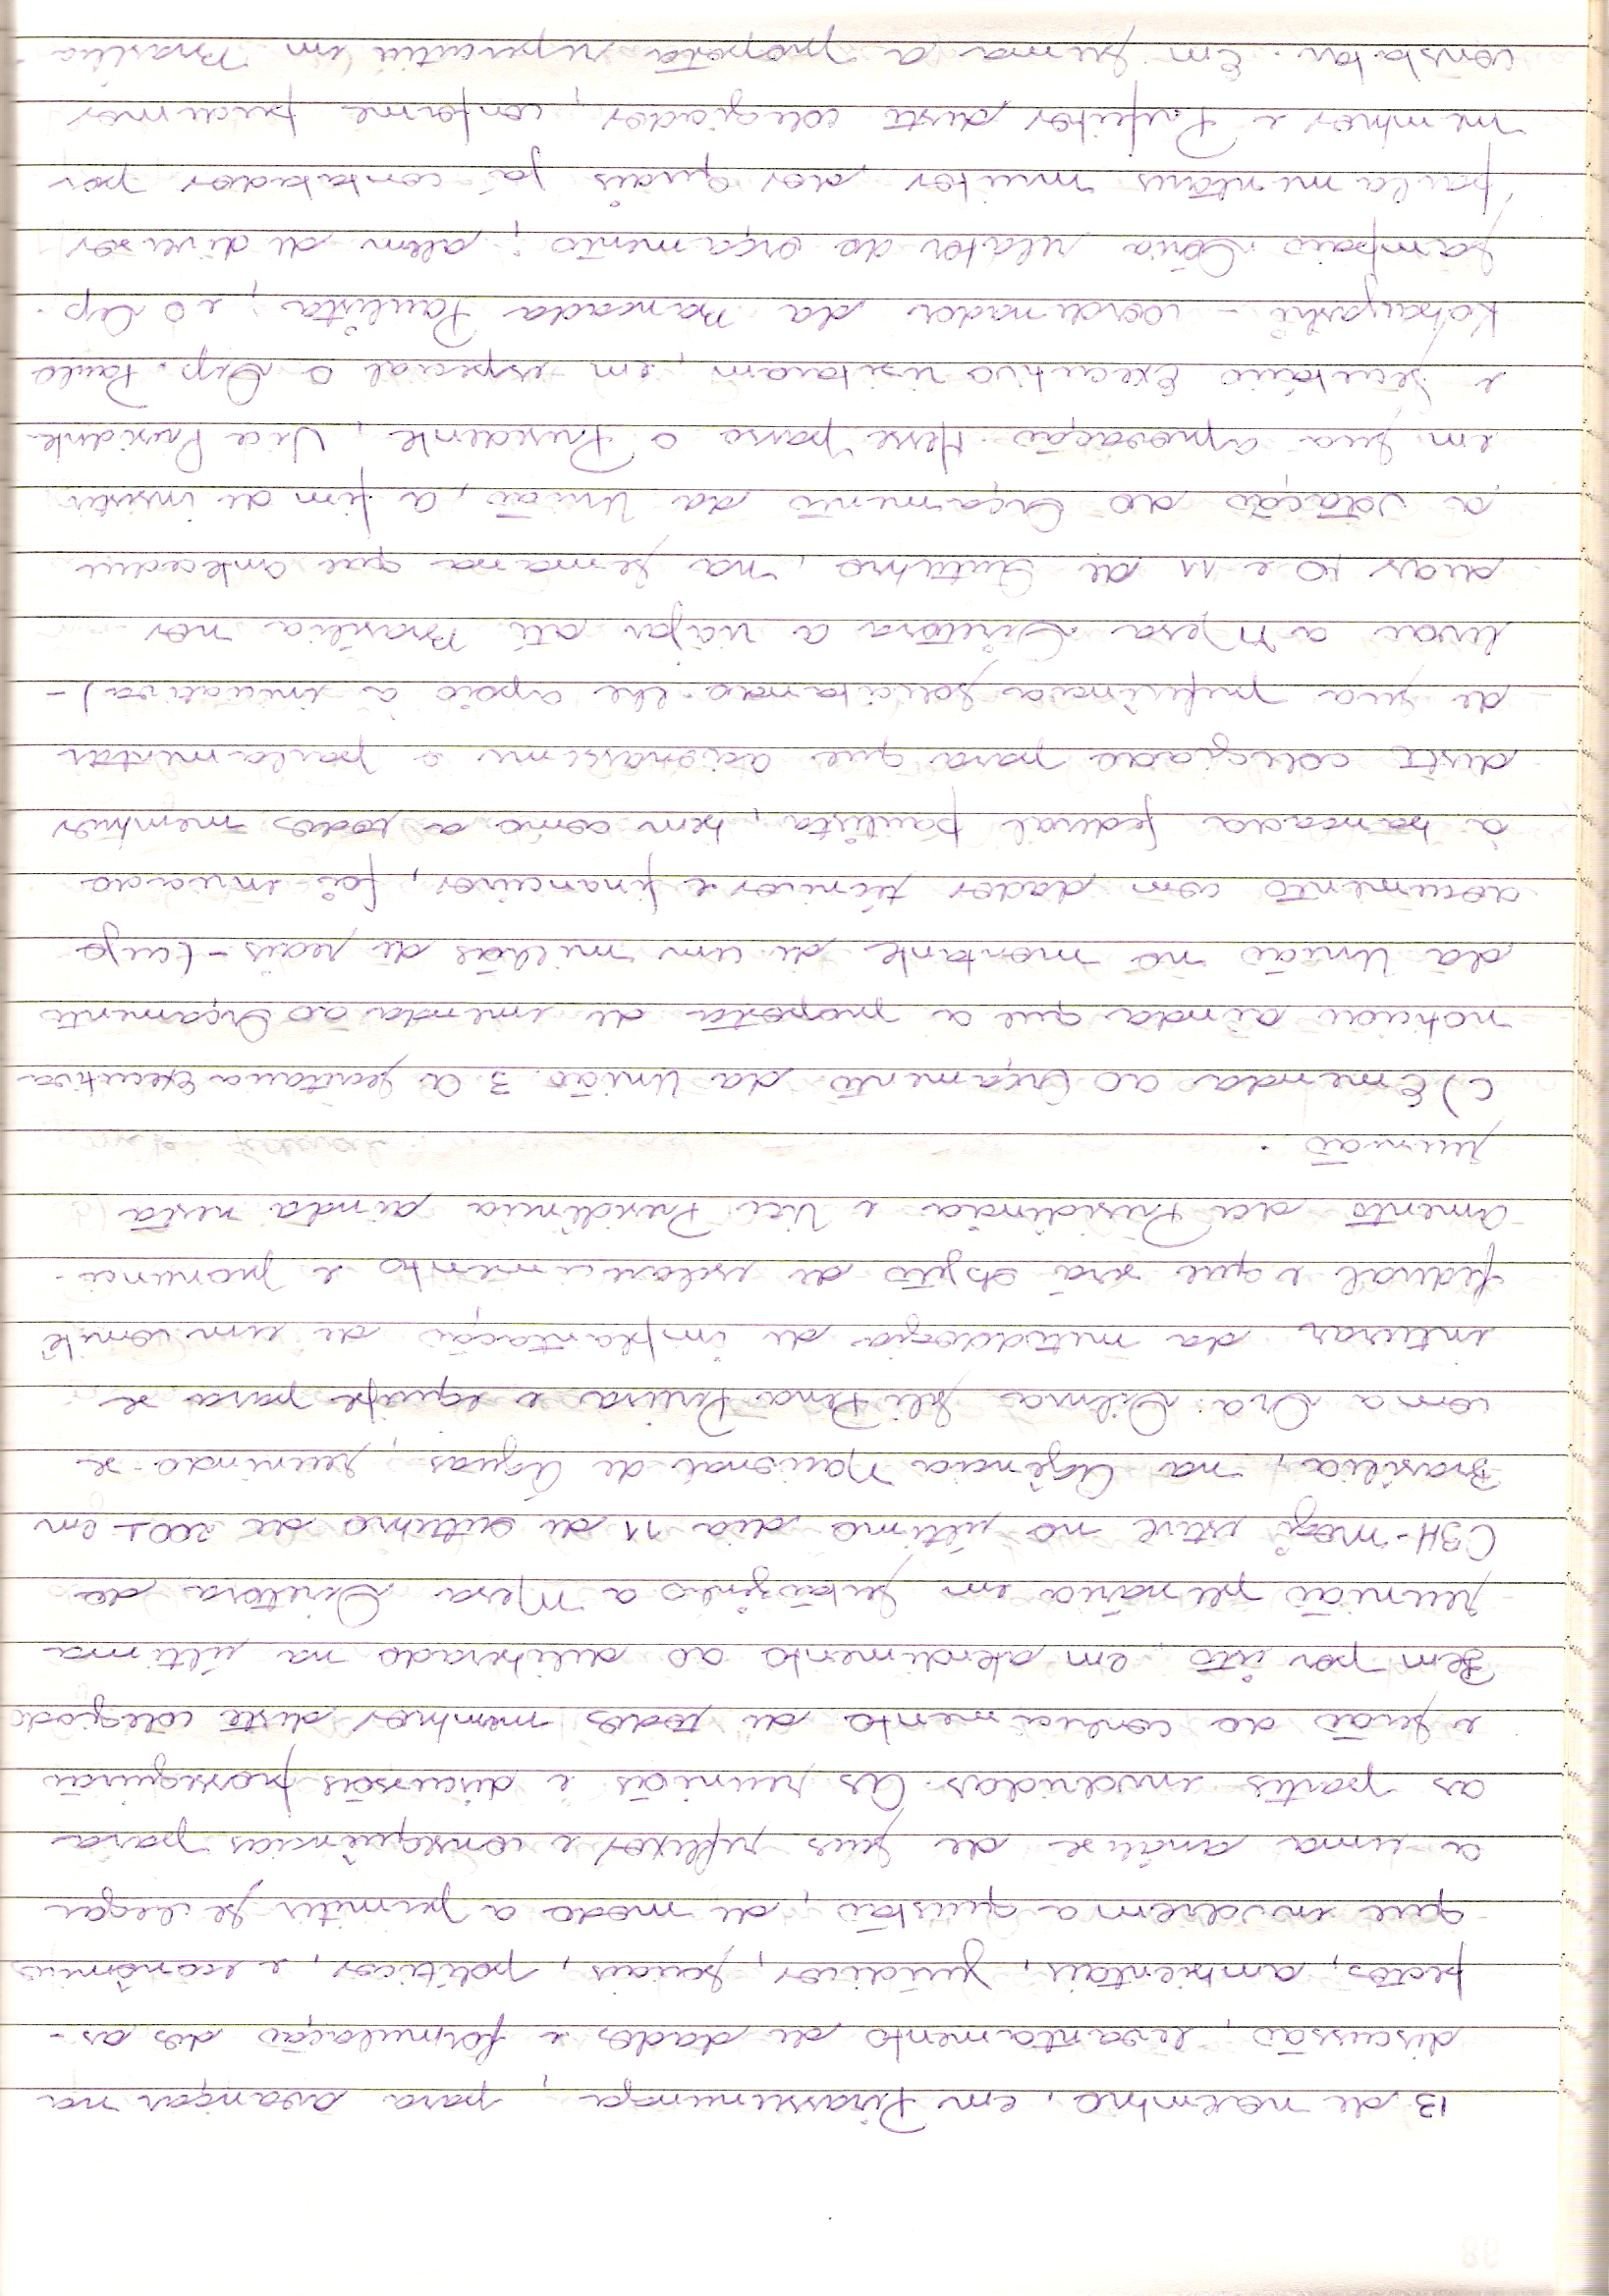 13 de novembro, em Pirassununga, para avançar na
discussão, levantamento de dados e formulação dos as-
pectos, ambientais, jurídicos, sociais, políticos, e econômicos
que envolvem a questão, de modo a permitir se chegar
a uma análise de seus reflexos e consequências para
as partes envolvidas. As reuniões e discussões prosseguirão
e serão do conhecimento de todos membros deste colegiado
Sem por isto, em atendimento ao deliberado na última
reunião plenária em Sertãozinho a Mesa Diretora do
CBH-mogi esteve no último dia 11 de outubro de 2001 em
Brasília, na Agência Nacional de Águas, reunindo-se
com a Dra. Dilma Seli Pena Pereira e equipe para se
inteirar da metodologia de implantação de um comitê
federal e que será objeto de esclarecimento e pronunci-
amento da Presidência e Vice Presidência ainda nesta
reunião.
c) Emenda ao Orçamento da União. 3 A Secretaria Executiva
noticiou ainda que a proposta de emenda ao Orçamento
da União no montante de um milhão de reais - (cujo
documento com dados técnicos e financeiros, foi enviado
à bancada federal paulista, bem como a todos membros
deste colegiado para que acionassem o parlamentar
de sua preferência solicitando-lhe apoio à iniciativa) -
levou a Mesa Diretora a viajar até Brasília nos
dias 10 e 11 de Outubro, na semana que antecedeu
a votação do Orçamento da União, a fim de insistir
em sua aprovação. Nesse passo o Presidente, Vice Presidente
e Secretário Executivo visitaram, em especial o Dep. Paulo
Kobayashi - coordenador da Bancada Paulista, e o Dep.
Sampaio Dória relator do orçamento; além de diversos
parlamentares muitos dos quais já contatados por
membros e Prefeitos deste colegiados, conforme pudemos
constatar. Em suma a proposta repercutiu em Brasília